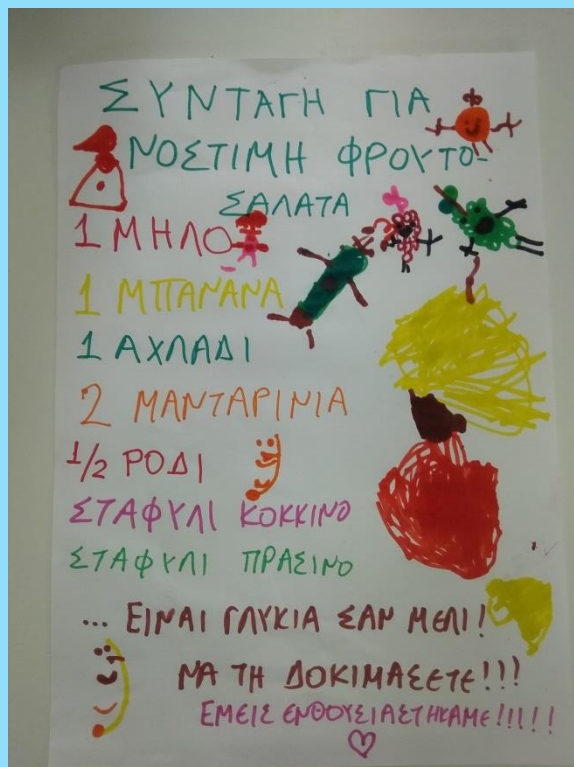 ΣΥΝΤΑΓΗ ΓΙΑ
ΝΟΣΤΙΜΗ ΦΡΟΥΤΟ-
ΣΑΛΑΤΑ
1 ΜΗΛΟ
1 ΜΠΑΝΑΝΑ
1 ΑΧΛΑΔΙ
2 ΜΑΝΤΑΡΙΝΙΑ
1/2 ΡΟΔΙ
ΣΤΑΦΥΛΙ ΚΟΚΚΙΝΟ
ΣΤΑΦΥΛΙ ΠΡΑΣΙΝΟ
... ΕΙΝΑΙ ΓΛΥΚΙΑ ΣΑΝ ΜΕΛΙ!
ΝΑ ΤΗ ΔΟΚΙΜΑΣΕΤΕ!!!
ΕΜΕΙΣ ΕΝΘΟΥΣΙΑΣΤΗΚΑΜΕ!!!!!